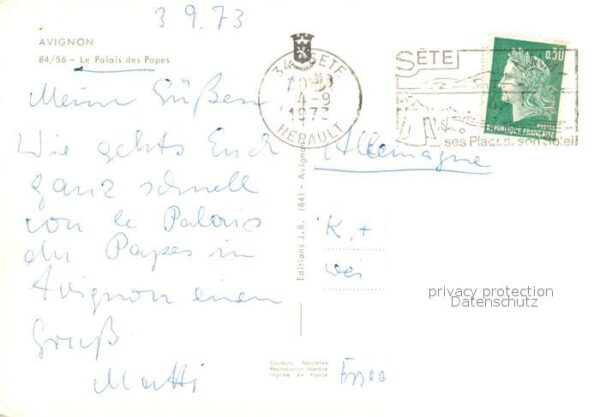 3 9.73
AVIGNON
84/56 - Le Palais des Papes
Meine Süßen
Wie gehts Euch
ganz schnell
von le Palais
du Papes in
Avignon einen
Gruß
Matti
Editions J.B. (84) - Avigno
Couleurs Naturelles
Reproduction interdite
Imprimé en France
34 SÈTE
4-9
1973
HERAULT
SÈTE
ses Plages, son Soleil
0,30
POSTES
RÉPUBLIQUE FRANÇAISE
Allemagne
K, +
privacy protection
Datenschutz